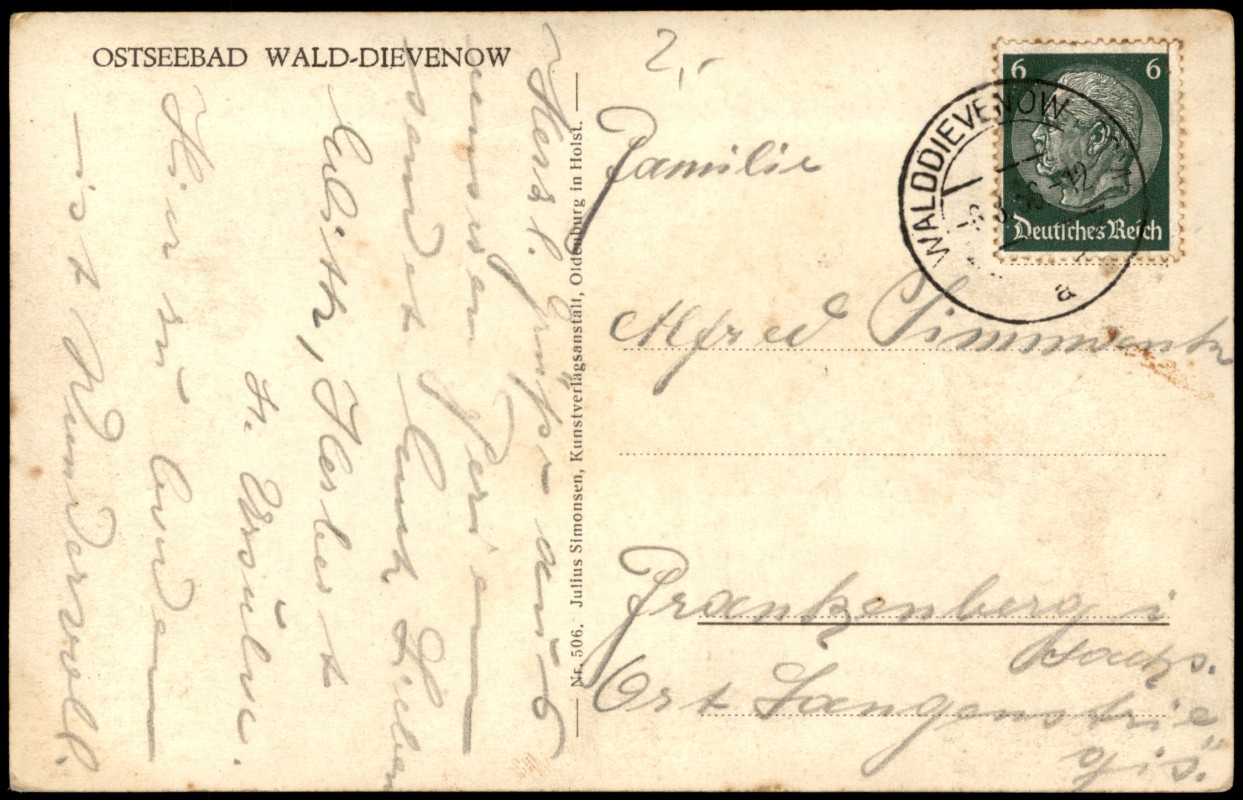 OSTSEEBAD WALD-DIEVENOW
2,-
Herzl. Grüße aus
unseren Ferien
sendet Euch Lieben
Edith, Herbert
u. Ursülne.
Hier zu baden
ist Wundervoll.
Nr. 506. Julius Simonsen, Kunstverlagsanstalt, Oldenburg in Holst.
6 6
Deutsches Reich
WALDDIEVENOW
a
Familie
Alfred Simmwentz
Frankenberg i
Sachs.
Ort Langenstrie